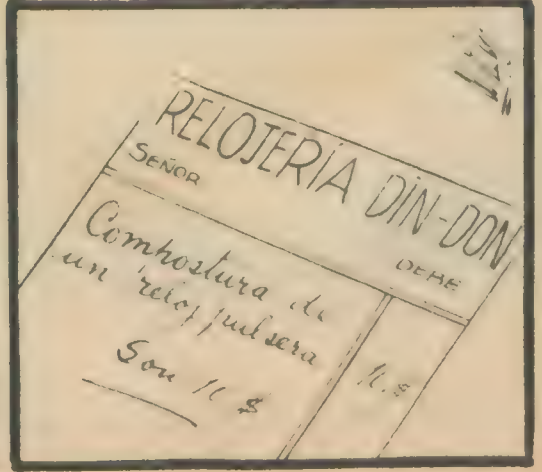 RELOJERÍA DIN-DON
SEÑOR
DEBE
Compostura de
un reloj pulsera
Son 11 $
11 $